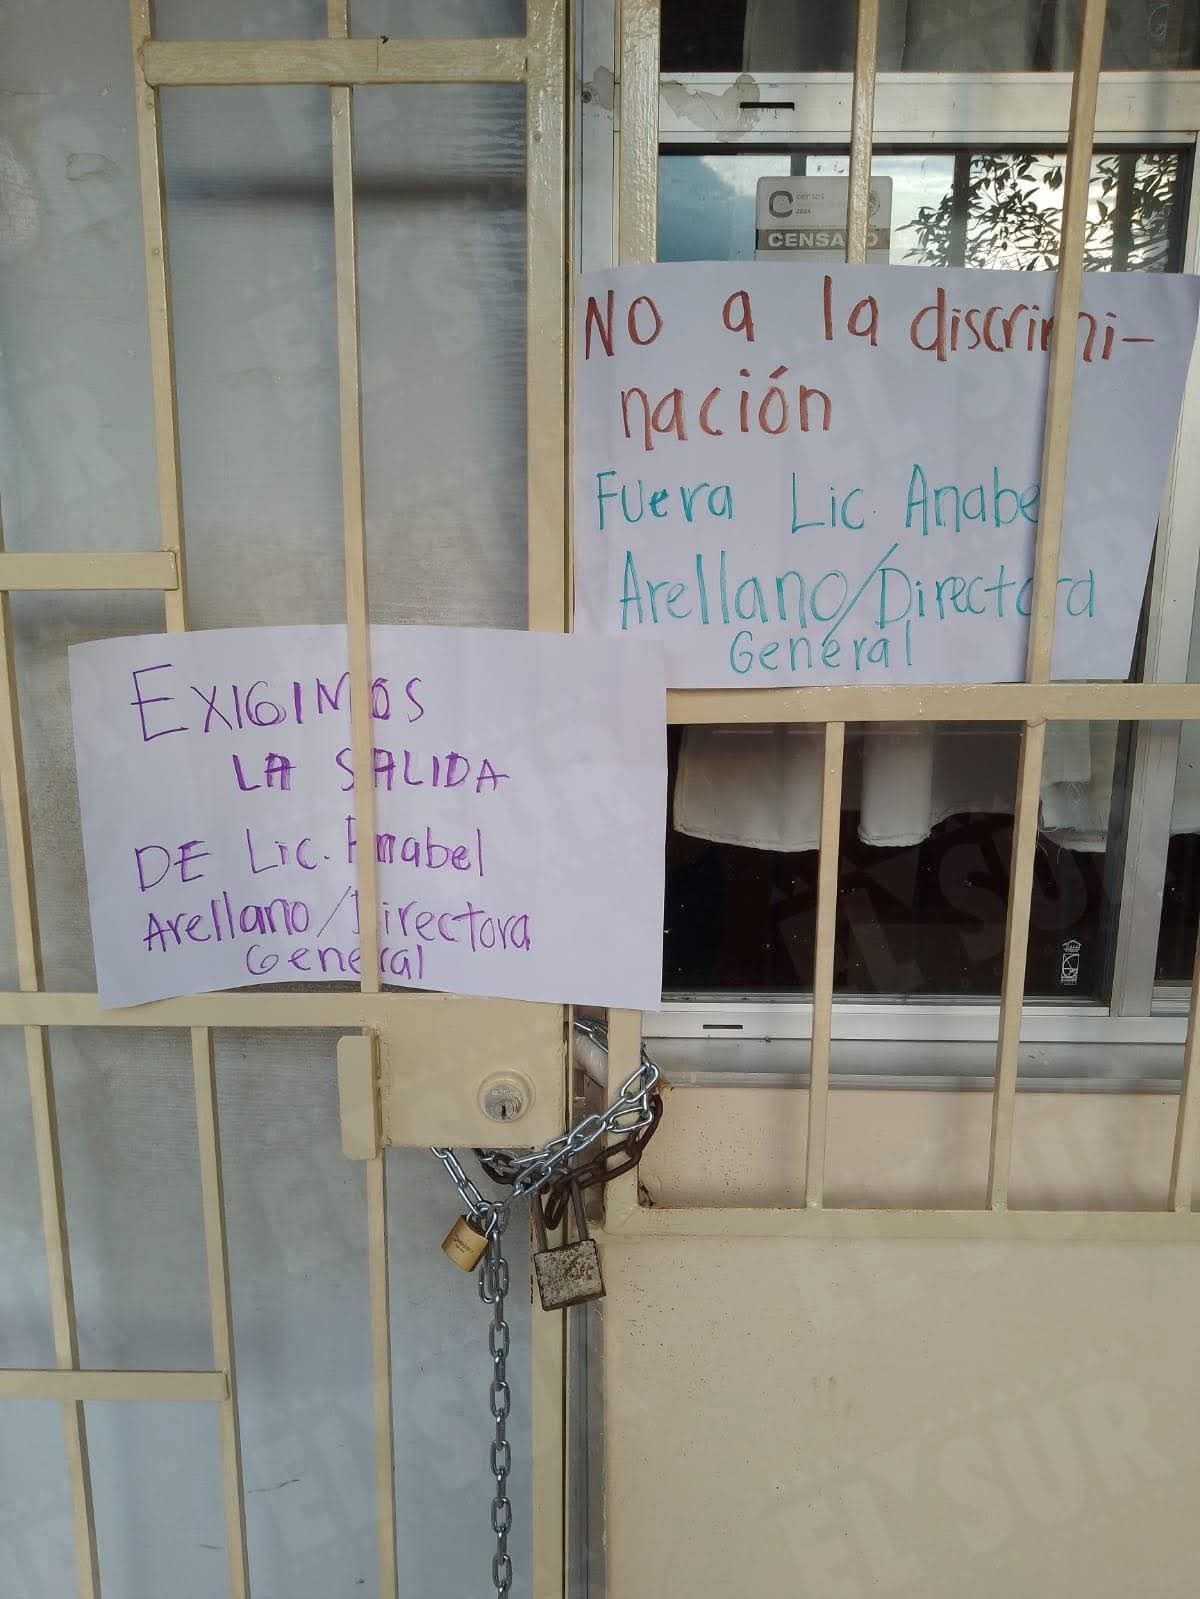 censos
2024
CENSADO
NO a la discrimi-
nación
Fuera Lic. Anabel
Arellano/Directora
General
EXIGIMOS
LA SALIDA
DE Lic. Anabel
Arellano/Directora
General
EL SUR